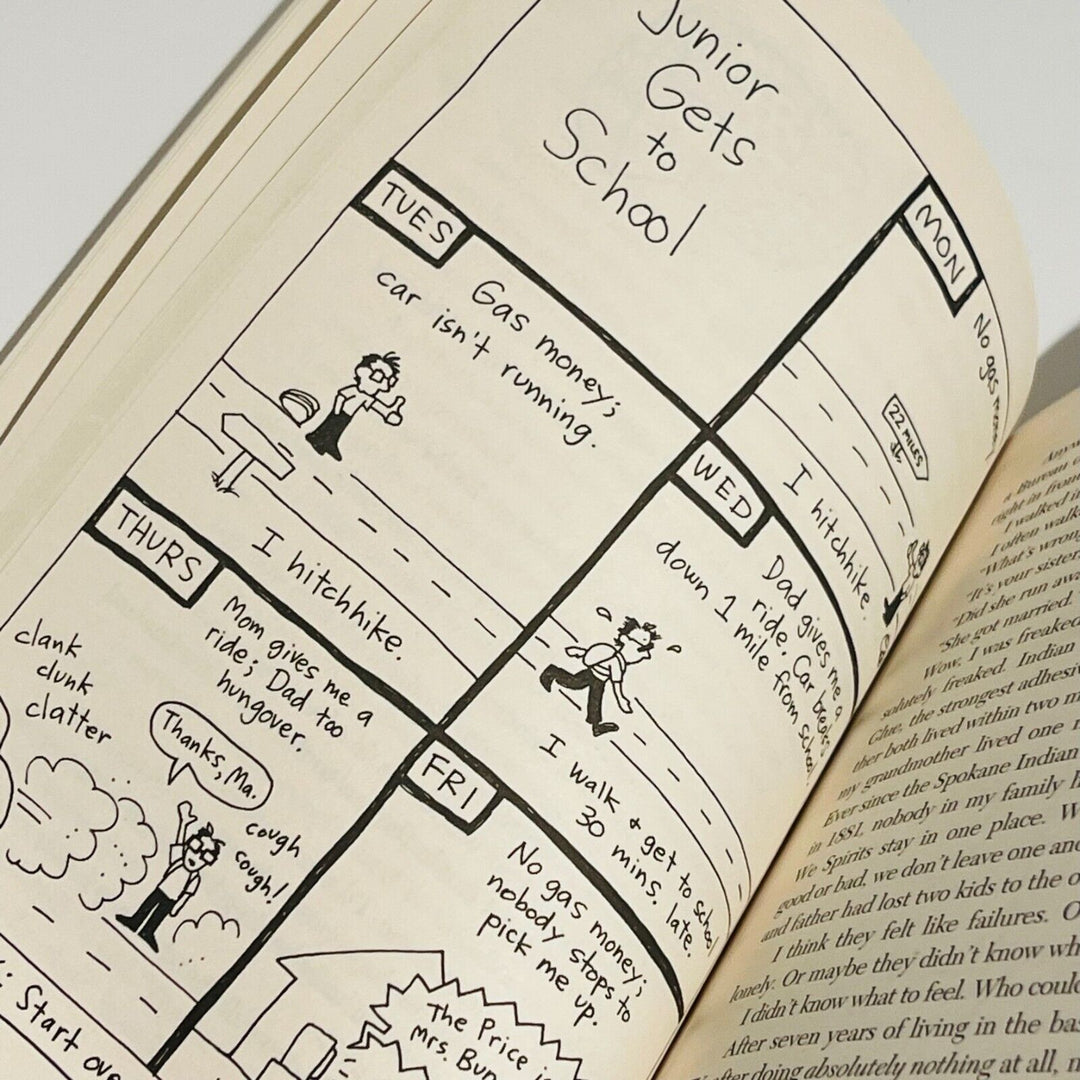 Junior
Gets
to
School
MON
No gas
22 MILES
I hitchhike.
TUES
Gas money;
car isn't running.
I hitchhike.
WED
Dad gives me a
ride. Car breaks
down 1 mile from school
I walk & get to school
30 mins. late.
THURS
Mom gives me a
ride; Dad too
hungover.
clank
clunk
clatter
Thanks, Ma.
cough
cough!
Start
FRI
No gas money;
nobody stops to
pick me up.
The Price
Mrs.
a Bureau
right in
I walked
I often
"What's
"It's your sister
"Did she run
"She got married.
Wow, I was freaked
solutely freaked. Indian
Glue, the strongest
ther both lived within two
my grandmother lived one
Ever since the Spokane Indian
in 1881, nobody in my family
We Spirits stay in one place.
good or bad, we don't leave one
and father had lost two kids to the
I think they felt like failures.
lonely. Or maybe they didn't know
I didn't know what to feel. Who could
After seven years of living in the
after doing absolutely nothing at all,